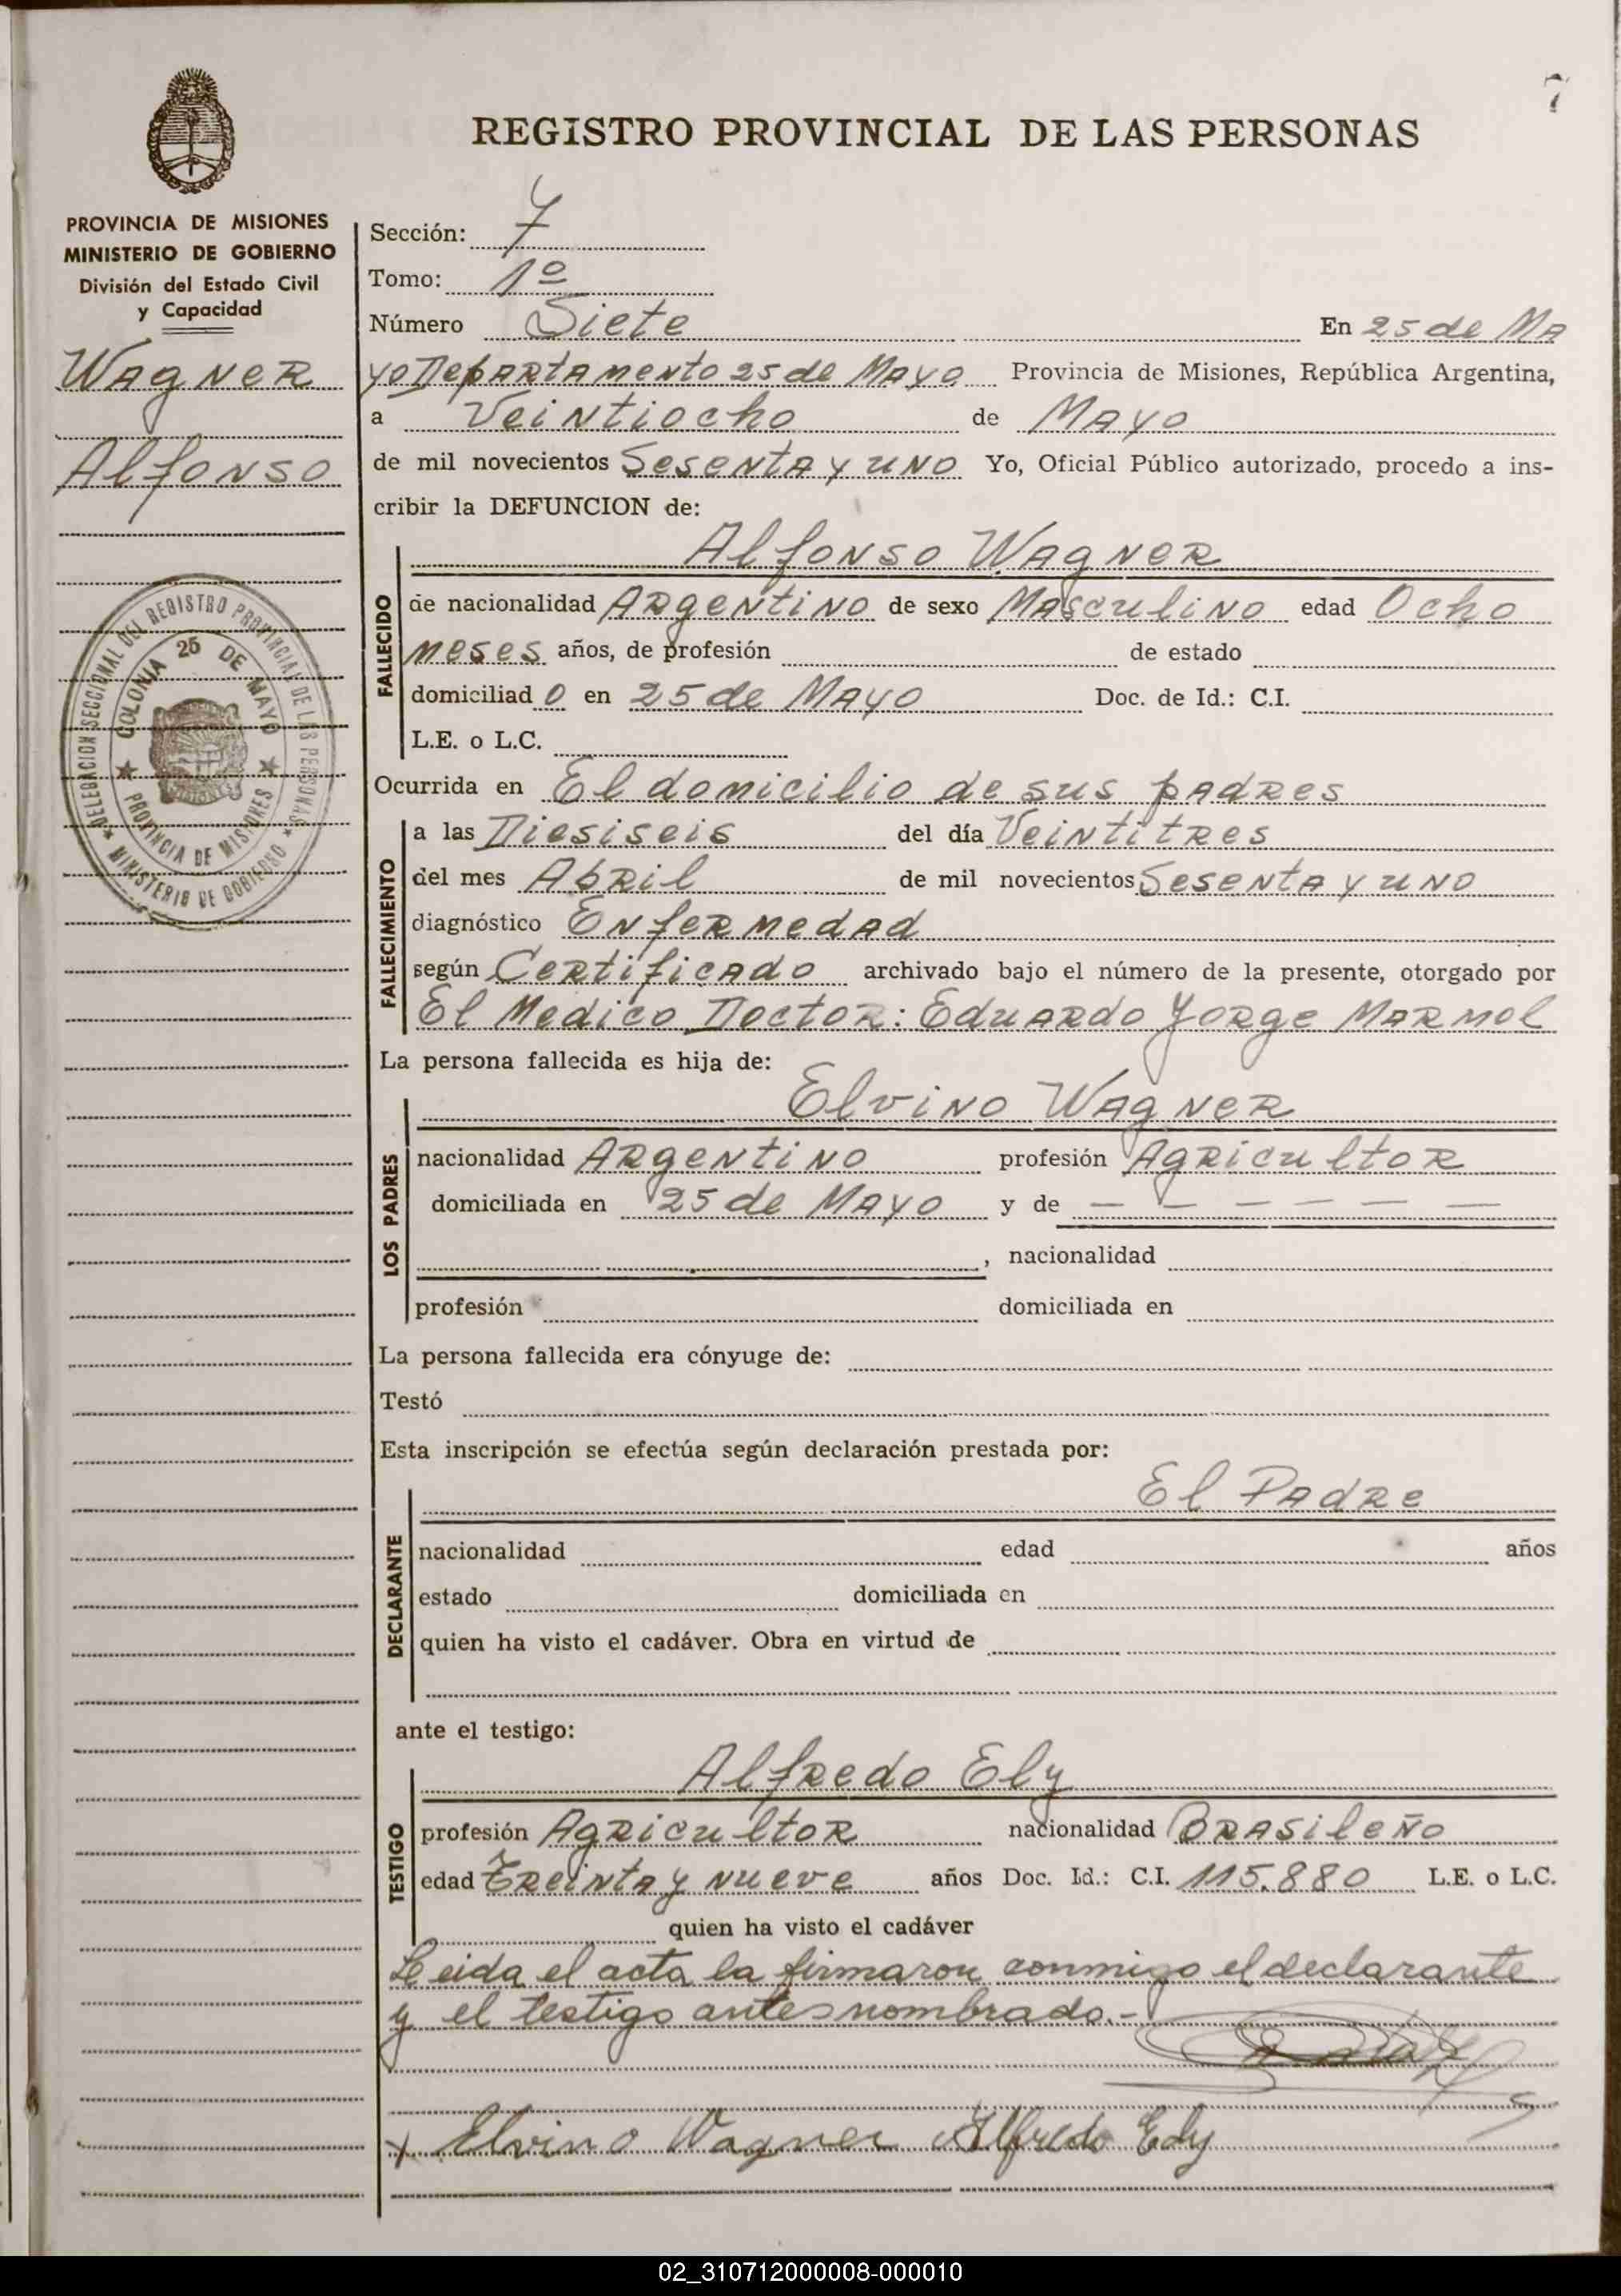 7
REGISTRO PROVINCIAL DE LAS PERSONAS
PROVINCIA DE MISIONES
MINISTERIO DE GOBIERNO
División del Estado Civil
y Capacidad
Wagner
Alfonso
DELEGACION SECCIONAL DEL REGISTRO PROVINCIAL DE LAS PERSONAS
MINISTERIO DE GOBIERNO
COLONIA 25 DE MAYO
PROVINCIA DE MISIONES
Sección: 7
Tomo: 1º
Número Siete En 25 de Ma
yo Departamento 25 de Mayo Provincia de Misiones, República Argentina,
a Veintiocho de Mayo
de mil novecientos Sesenta y uno Yo, Oficial Público autorizado, procedo a ins-
cribir la DEFUNCION de:
Alfonso Wagner
FALLECIDO
de nacionalidad Argentino de sexo Masculino edad Ocho
meses años, de profesión de estado
domiciliad o en 25 de Mayo Doc. de Id.: C.I.
L.E. o L.C.
Ocurrida en El domicilio de sus padres
FALLECIMIENTO
a las Diesiseis del día Veintitres
del mes Abril de mil novecientos Sesenta y uno
diagnóstico Enfermedad
según Certificado archivado bajo el número de la presente, otorgado por
El Medico Doctor: Eduardo Jorge Marmol
La persona fallecida es hija de:
Elvino Wagner
LOS PADRES
nacionalidad Argentino profesión Agricultor
domiciliada en 25 de Mayo y de — — — — — —
, nacionalidad
profesión domiciliada en
La persona fallecida era cónyuge de:
Testó
Esta inscripción se efectúa según declaración prestada por:
El Padre
DECLARANTE
nacionalidad edad años
estado domiciliada en
quien ha visto el cadáver. Obra en virtud de
ante el testigo:
Alfredo Ely
TESTIGO
profesión Agricultor nacionalidad Brasileño
edad Treinta y nueve años Doc. Id.: C.I. 115.880 L.E. o L.C.
quien ha visto el cadáver
Leida el acta la firmaron conmigo el declarante
y el testigo antes nombrado.-
x Elvino Wagner Alfredo Ely
02_310712000008-000010